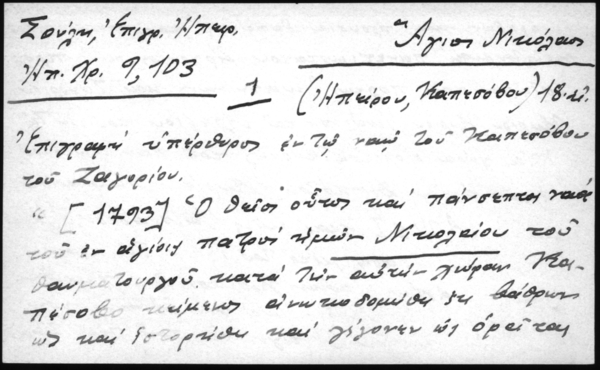 Σούλη, Ἐπιγρ. Ἠπείρ.
Ἅγιος Νικόλαος
Ἠπ. Χρ. 9, 103
1
(Ἠπείρου, Καπεσόβου) 18. αἰ.
Ἐπιγραφή ὑπέρθυρος ἐν τῷ ναῷ τοῦ Καπεσόβου
τοῦ Ζαγορίου.
" [1793] Ὁ θεῖος οὗτος καί πάνσεπτος ναός
τοῦ ἐν ἁγίοις πατρός ἡμῶν Νικολάου τοῦ
θαυματουργοῦ κατά τήν αὐτήν χώραν Κα-
πέσοβο κείμενος ἀνωκοδομήθη ἐκ βάθρων
ὡς καί ἱστορήθη καί γέγονεν ὡς ὁρᾶται